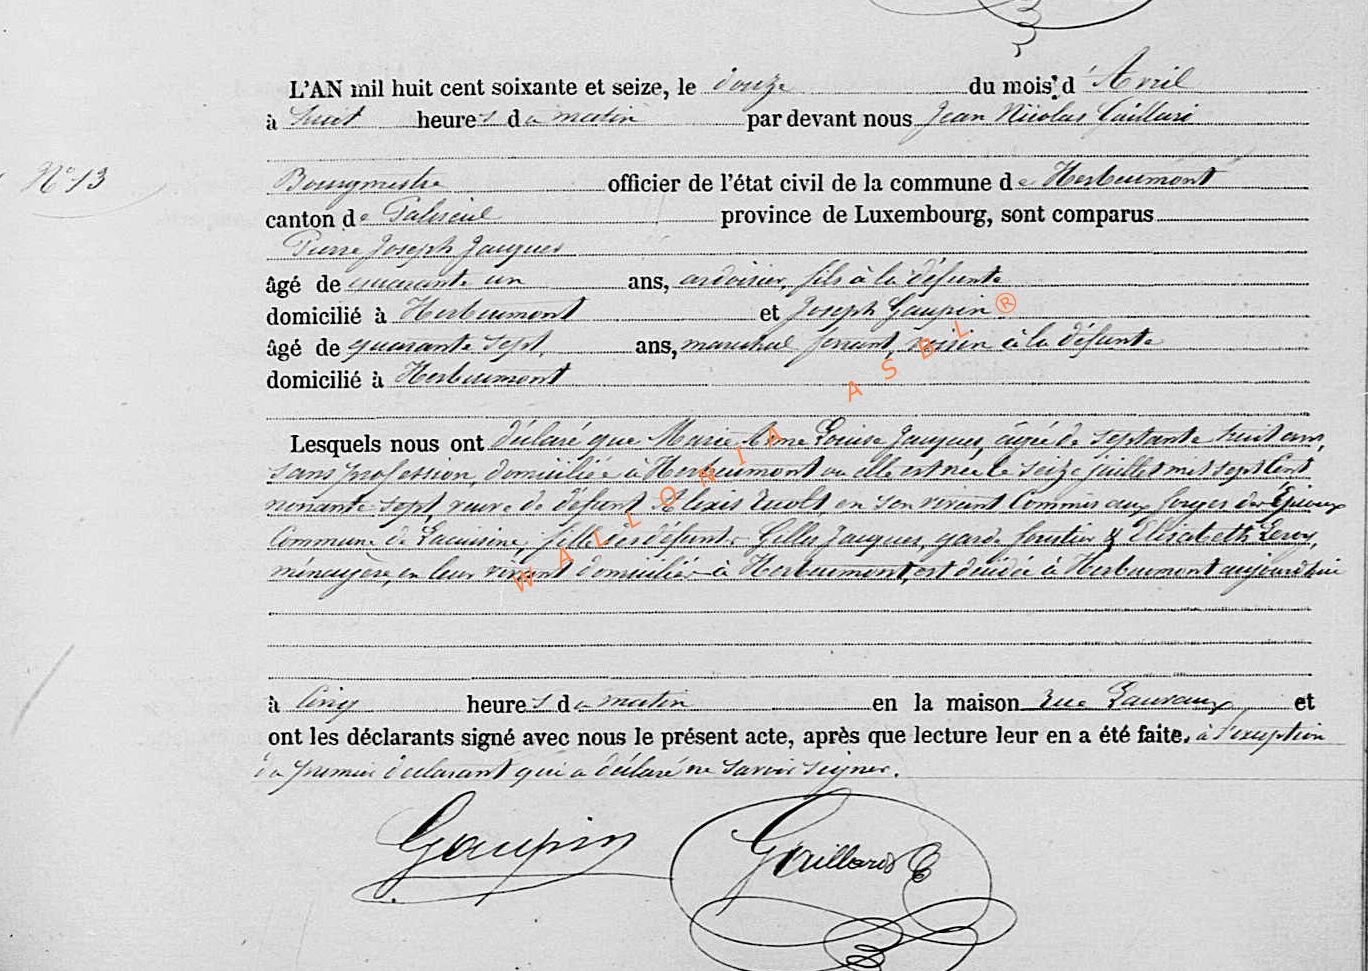 L'AN mil huit cent soixante et seize, le douze du mois d'Avril
à huit heures du matin par devant nous Jean Nicolas Gaillard
N° 13
Bourgmestre officier de l'état civil de la commune de Herbeumont
canton de Paliseul province de Luxembourg, sont comparus
Pierre Joseph Jacques
âgé de quarante un ans, ardoisier, fils à la défunte
domicilié à Herbeumont et Joseph Gaupin
âgé de quarante sept ans, maréchal ferrant, voisin à la défunte
domicilié à Herbeumont
Lesquels nous ont déclaré que Marie Anne Louise Jacques, âgée de septante huit ans,
sans profession, domiciliée à Herbeumont où elle est née le seize juillet mil sept cent
nonante sept, veuve de défunt Alexis en son vivant Commis aux forges des Epioux
Commune de Lacuisine, fille des défunts Gilles Jacques, garde forestier & Elisabeth Leroy,
ménagère, en leur vivant domiciliés à Herbeumont, est décédée à Herbeumont aujourd'hui
à cinq heures du matin en la maison rue et
ont les déclarants signé avec nous le présent acte, après que lecture leur en a été faite, à l'exception
du premier déclarant qui a déclaré ne savoir signer.
Gaupin Gaillard
WALLONIA ASBL ®